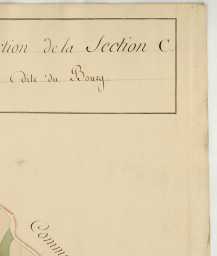 ction de la Section C
Dite du Bourg
Commu